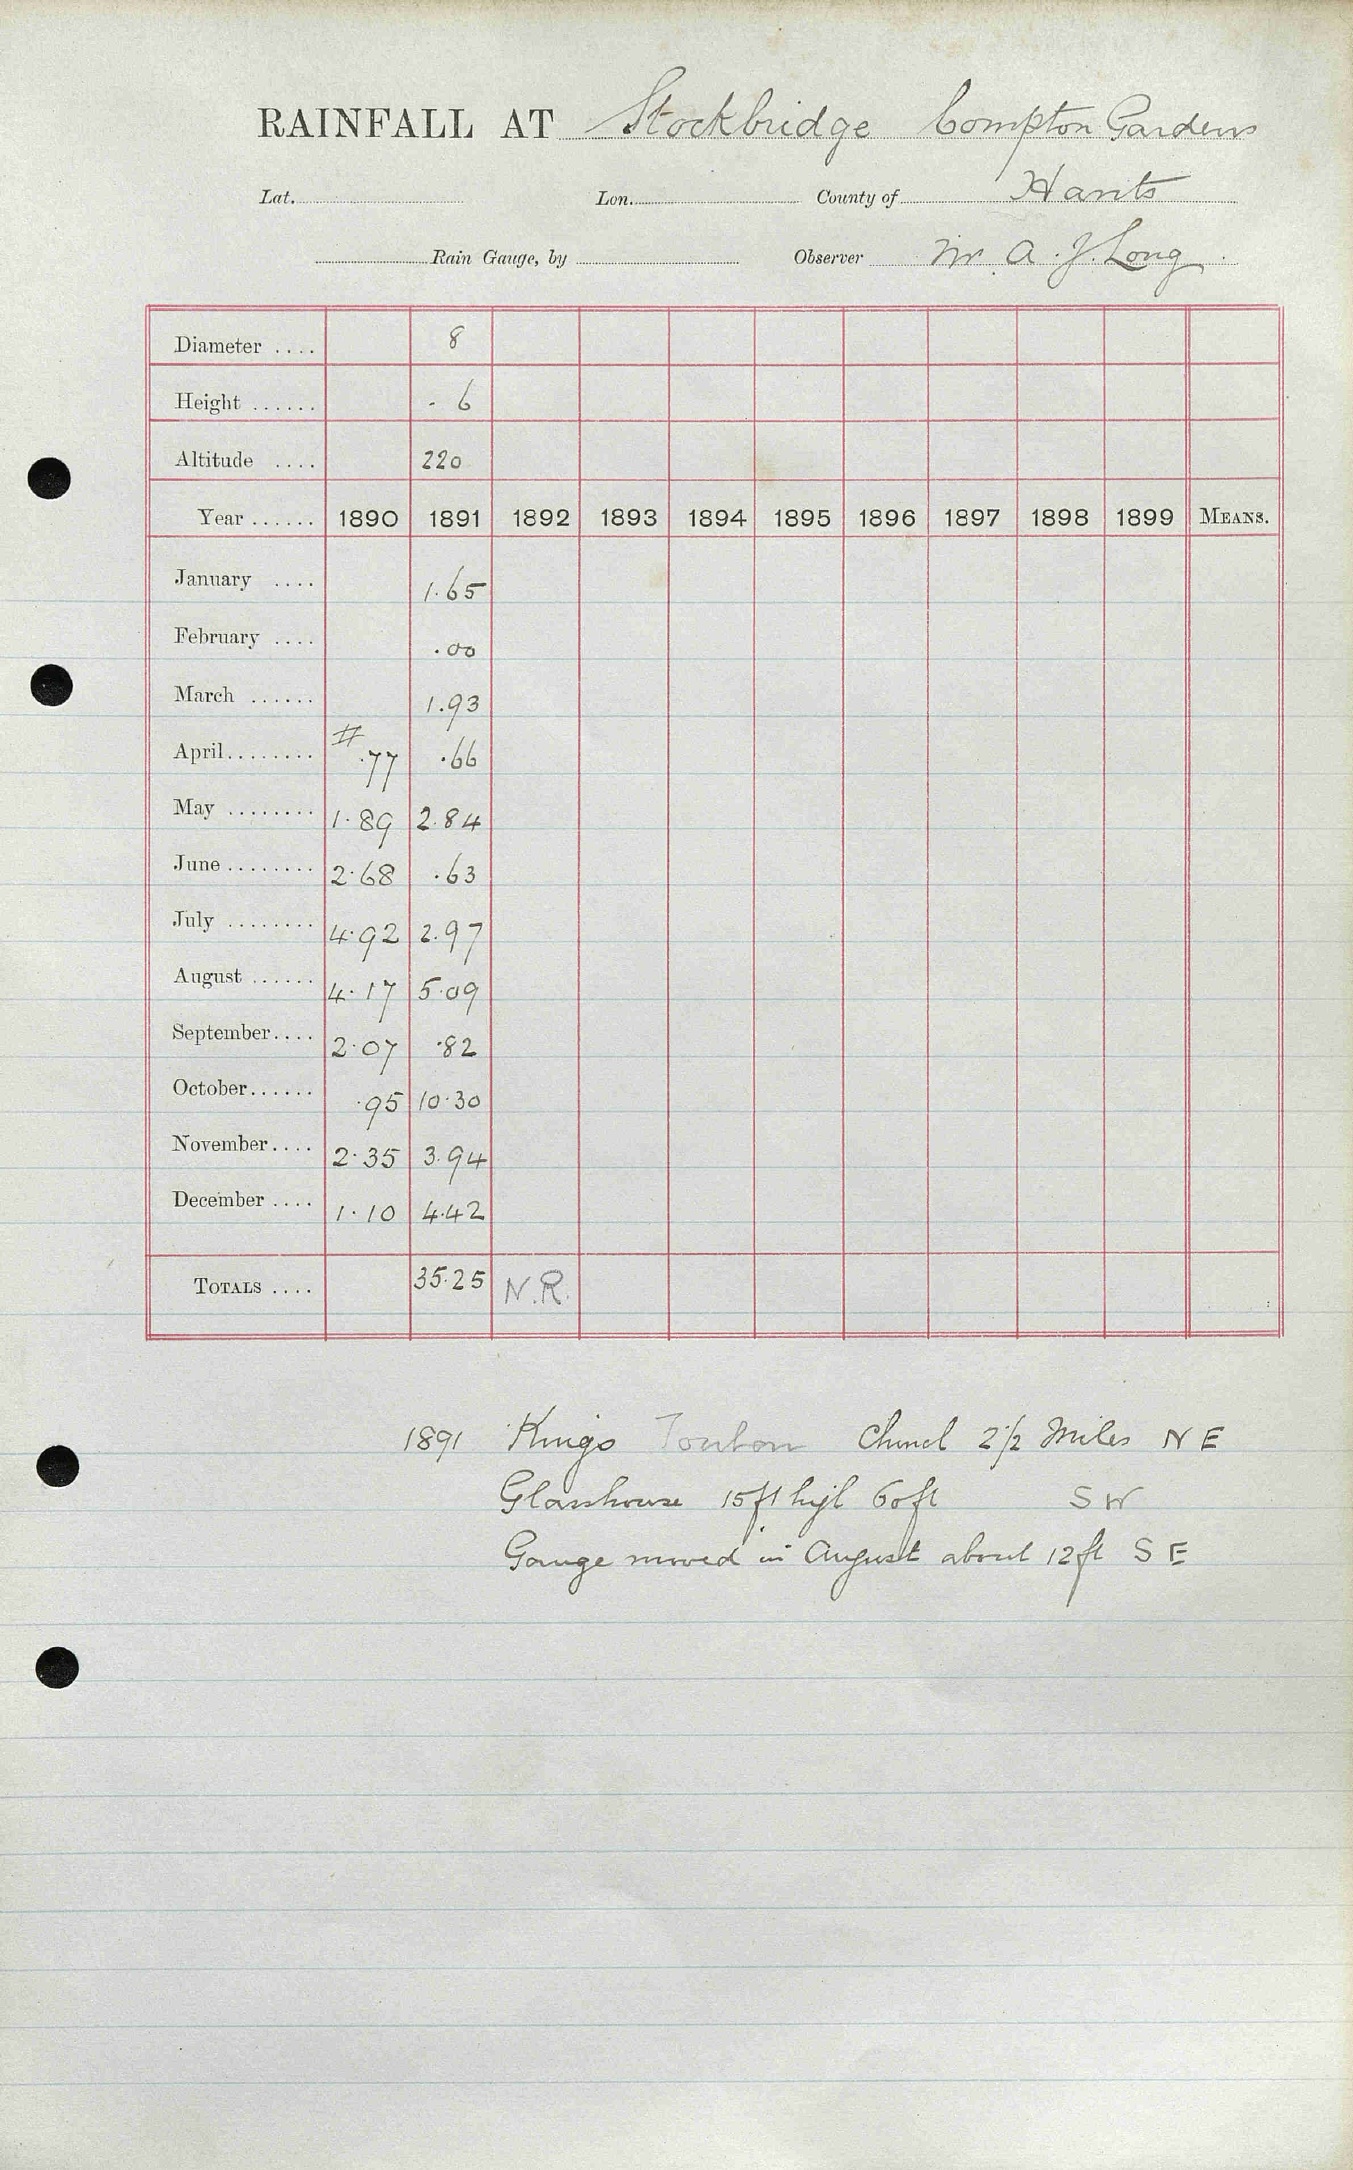 RAINFALL AT Stockbridge Compton Gardens
Lat. Lon. County of Hants
Rain Gauge, by Observer Mr A. J. Long
Diameter .... 8
Height ...... - 6
Altitude .... 220
Year ...... 1890 1891 1892 1893 1894 1895 1896 1897 1898 1899 MEANS.
January .... 1.65
February .... .00
March ...... 1.93
April........ # .77 .66
May ........ 1.89 2.84
June ........ 2.68 .63
July ........ 4.92 2.97
August ...... 4.17 5.09
September.... 2.07 .82
October...... .95 10.30
November.... 2.35 3.94
December .... 1.10 4.42
TOTALS .... 35.25 N.R.
1891 Kings Church 2½ Miles N E
Glasshouse 15ft high 60ft S W
Gauge moved in August about 12ft S E